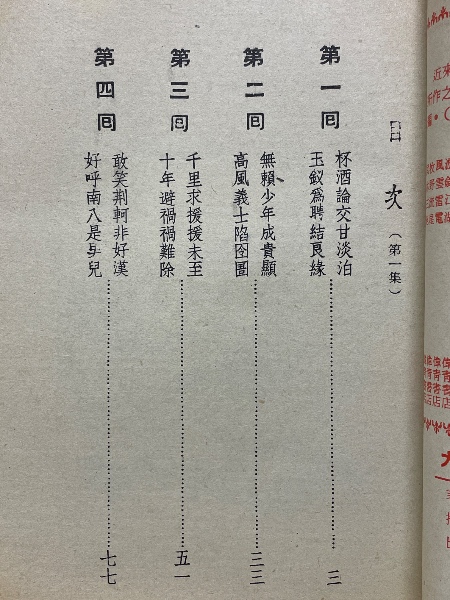 目次（第一集）
第一回
杯酒論交甘淡泊
玉釵爲聘結良緣
三
第二回
無賴少年成貴顯
高風義士陷囹圄
三三
第三回
千里求援援未至
十年避禍禍難除
五一
第四回
敢笑荆軻非好漢
好呼南八是男兒
七七